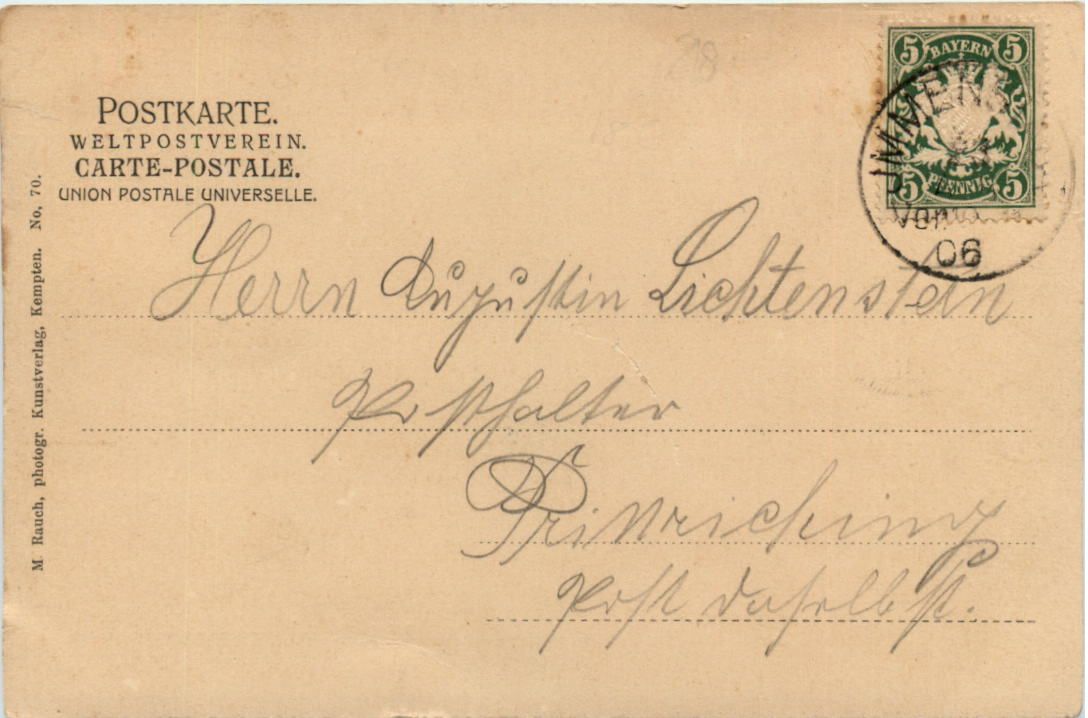 POSTKARTE.
WELTPOSTVEREIN.
CARTE-POSTALE.
UNION POSTALE UNIVERSELLE.
5 BAYERN 5
5 PFENNIG 5
Vorm
06
Herrn Augustin Lichtenstein
Posthalter
Post daselbst.
M. Rauch, photogr. Kunstverlag, Kempten. No. 70.